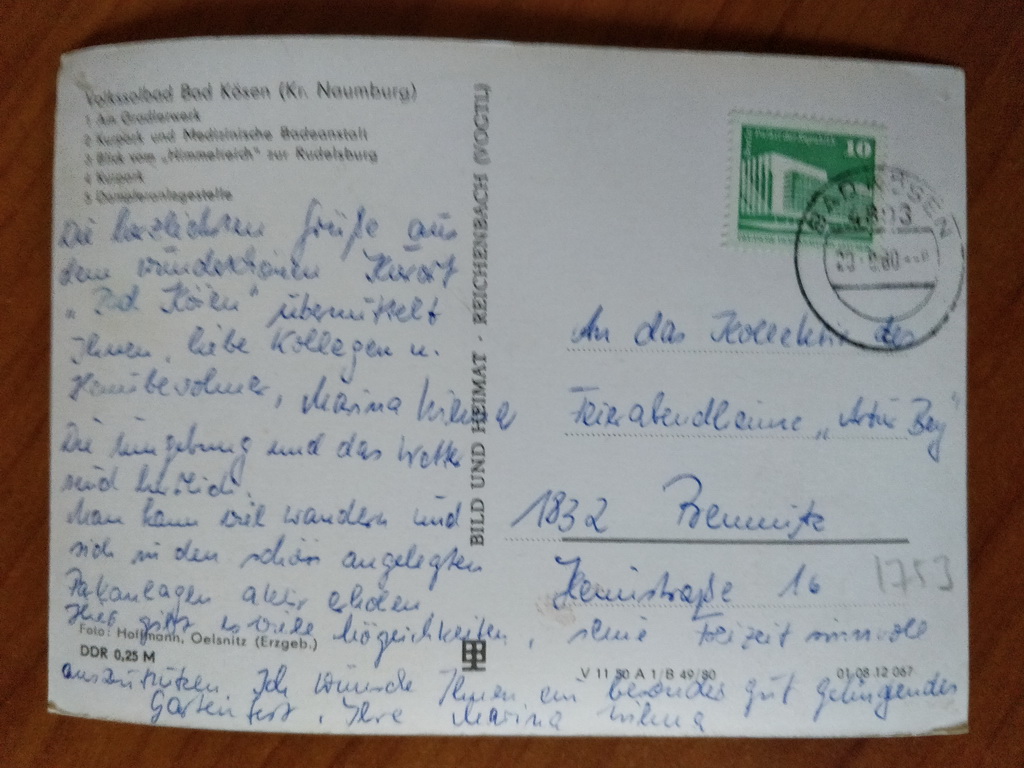 Volkssolbad Bad Kösen (Kr. Naumburg)
1 Am Gradierwerk
2 Kurpark und Medizinische Badeanstalt
3 Blick vom „Himmelreich" zur Rudelsburg
4 Kurpark
5 Dampferanlegestelle
Die herzlichsten Grüße aus
dem wunderschönen Kurort
„Bad Kösen" übermittelt
Ihnen, liebe Kollegen u.
Heimbewohner, Marina
Die Umgebung und das Wetter
sind herrlich.
Man kann viel wandern und
sich in den schön angelegten
Parkanlagen aktiv erholen
Hier gibt es viele Möglichkeiten, seine Freizeit sinnvoll
auszunützen. Ich wünsche Ihnen ein besonders gut gelingendes
Gartenfest, Ihre Marina
Foto: Hoffmann, Oelsnitz (Erzgeb.)
DDR 0,25 M
BILD UND HEIMAT · REICHENBACH (VOGTL)
10
BAD KÖSEN
4803
An das Kollektiv des
Feierabendheimes „Artur Becker"
1832 Premnitz
Heimstraße 16
1753
V 11 50 A 1/B 49/80
01 08 12 067